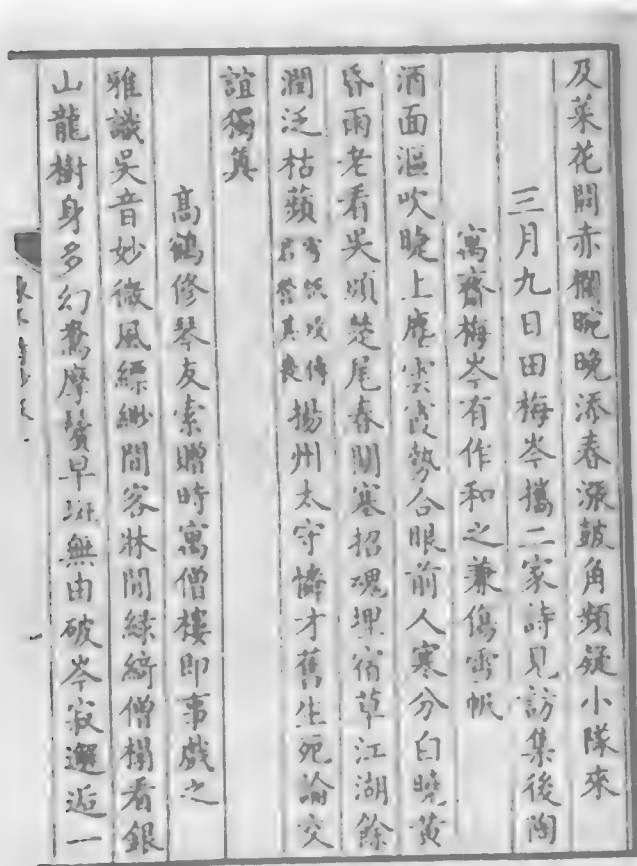 及菜花開赤欄晼晚添春漲鼓角頻疑小隊來
三月九日田梅岑攜二家詩見訪集後陶
寓齋梅岑有作和之兼傷雪帆
酒面漚吹上塵雲霞勢合眼前人寒分白曉黃
昏雨老看吳頭楚尾春關塞招魂埋宿草江湖餘
潤泛枯蘋雪帆歿君營其喪揚州太守憐才舊生死論交
誼獨真
高鶴修琴友索贈時寓僧樓即事戲之
雅識吳音妙微風縹緲間客牀間綠綺僧榻看銀
山龍樹身多幻摩鬢早斑無由破岑寂邂逅一